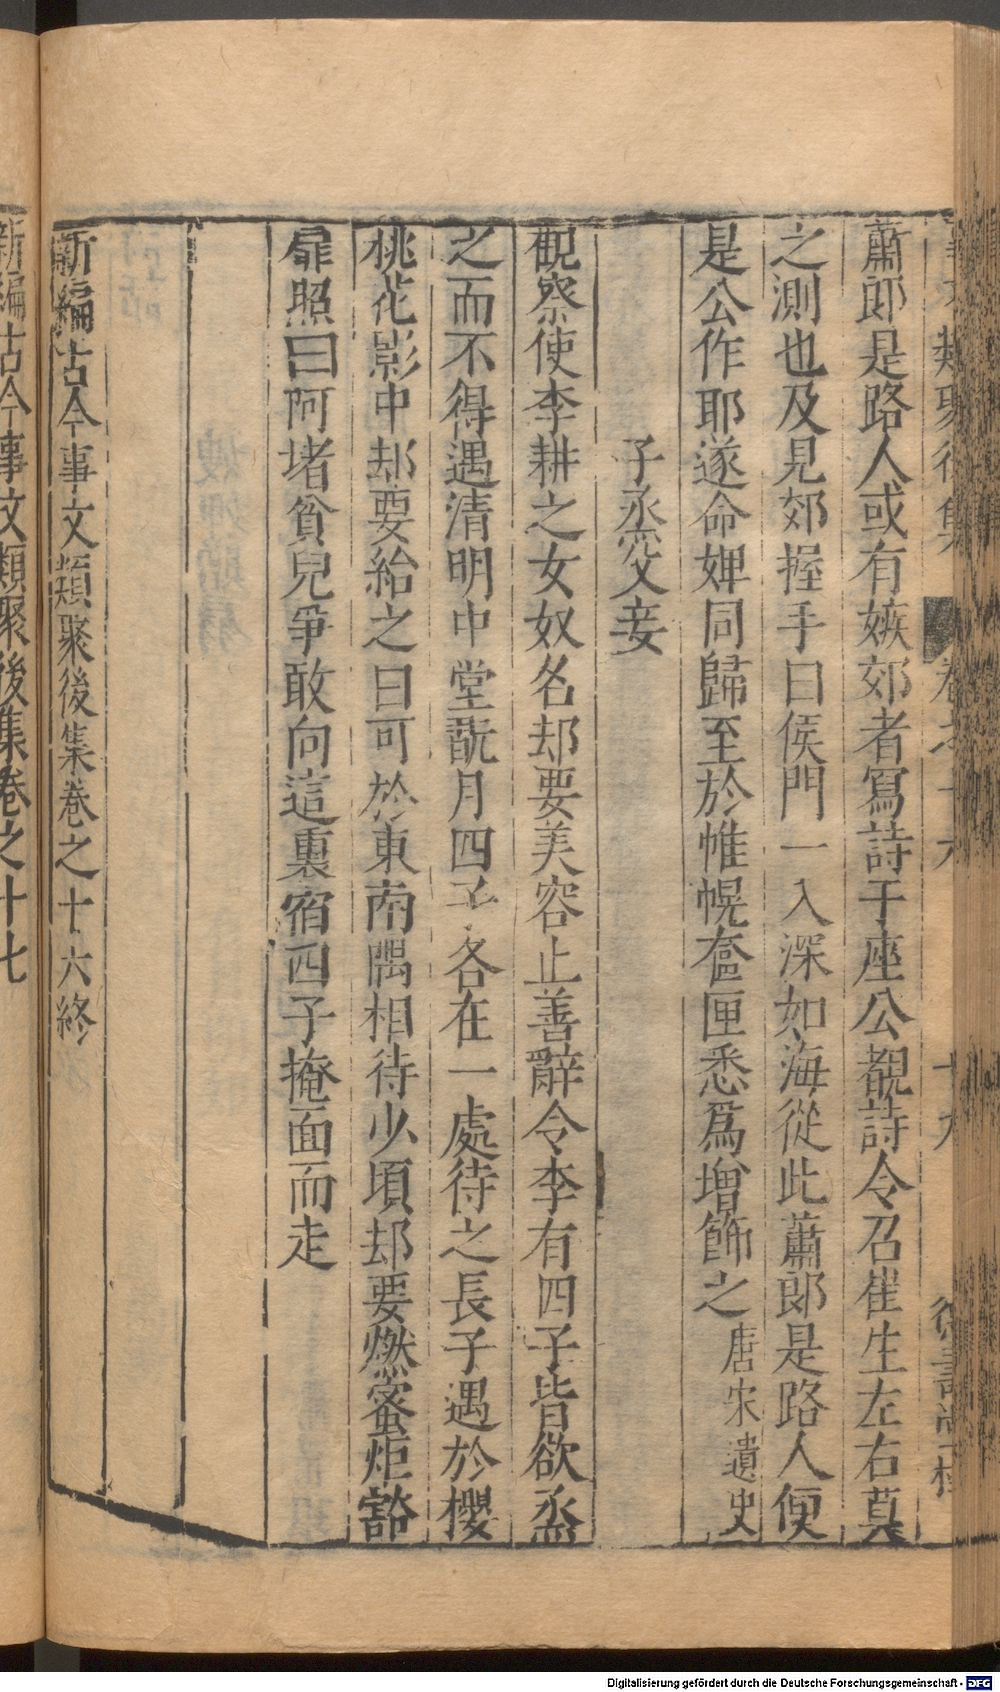 蕭郎是路人或有嫉郊者寫詩于座公覩詩令召崔生左右莫
之測也及見郊握手曰侯門一入深如海從此蕭郎是路人便
是公作耶遂命婢同歸至於帷幌奩匣悉爲增飾之唐宋遺史
子烝父妾
觀察使李耕之女奴名却要美容止善辭令李有四子皆欲烝
之而不得遇清明中堂翫月四子各在一處待之長子遇於櫻
桃花影中却要給之曰可於東南隅相待少頃却要燃蜜炬豁
扉照曰阿堵貧兒爭敢向這裏宿四子掩面而走
新編古今事文類聚後集卷之十六終
新編古今事文類聚後集卷之十七
Digitalisierung gefördert durch die Deutsche Forschungsgemeinschaft - DFG